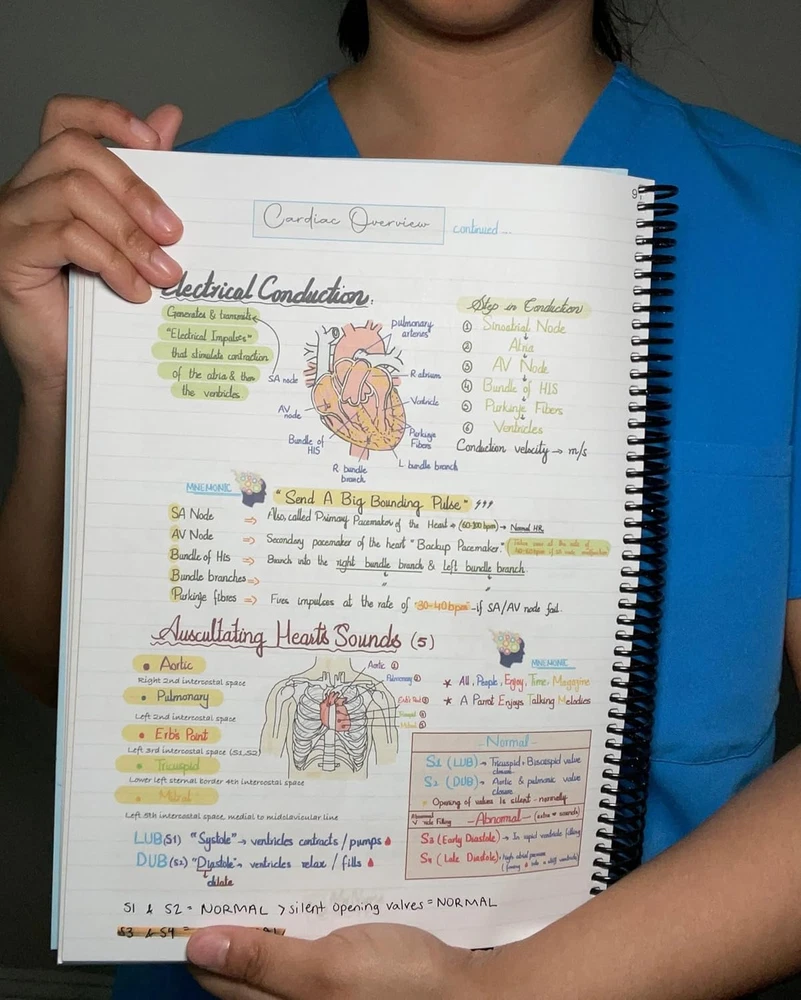 9
Cardiac Overview continued...
Electrical Conduction:
Generates & transmits
"Electrical Impulses"
that stimulate contraction
of the atria & then
the ventricles
SA node
AV node
Bundle of HIS
R bundle branch
L bundle branch
Purkinje Fibers
Ventricle
R atrium
pulmonary arteries
Step in Conduction
① Sinoatrial Node
② Atria
③ AV Node
④ Bundle of HIS
⑤ Purkinje Fibers
⑥ Ventricles
Conduction velocity → m/s
MNEMONIC
"Send A Big Bounding Pulse"
SA Node ⇒ Also, called Primary Pacemaker of the Heart → (60-100 bpm) → Normal HR.
AV Node ⇒ Secondary pacemaker of the heart "Backup Pacemaker."
Bundle of His ⇒ Branch into the right bundle branch & left bundle branch.
Bundle branches ⇒ " "
Purkinje fibres ⇒ Fires impulses at the rate of "30-40bpm" - if SA/AV node fail.
Auscultating Hearts Sounds (5)
• Aortic
Right 2nd intercostal space
• Pulmonary
Left 2nd intercostal space
• Erb's Point
Left 3rd intercostal space (S1,S2)
• Tricuspid
Lower left sternal border 4th intercostal space
• Mitral
Left 5th intercostal space, medial to midclavicular line
Aortic ①
Pulmonary ②
Erb's Point ③
Tricuspid ④
Mitral ⑤
MNEMONIC
* All, People, Enjoy, Time, Magazine
* A Parrot Enjoys Talking Melodies
- Normal -
S1 (LUB) → Tricuspid, Bicuspid valve
closed.
S2 (DUB) → Aortic & pulmonic valve
closure.
* Opening of valves is silent - normally
- Abnormal -
S3 (Early Diastole) → In rapid ventricle filling
S4 (Late Diastole)
LUB (S1) "Systole" → ventricles contracts / pumps
DUB (S2) "Diastole" → ventricles relax / fills
dilate
S1 & S2 = NORMAL > silent opening valves = NORMAL
S3 & S4 =